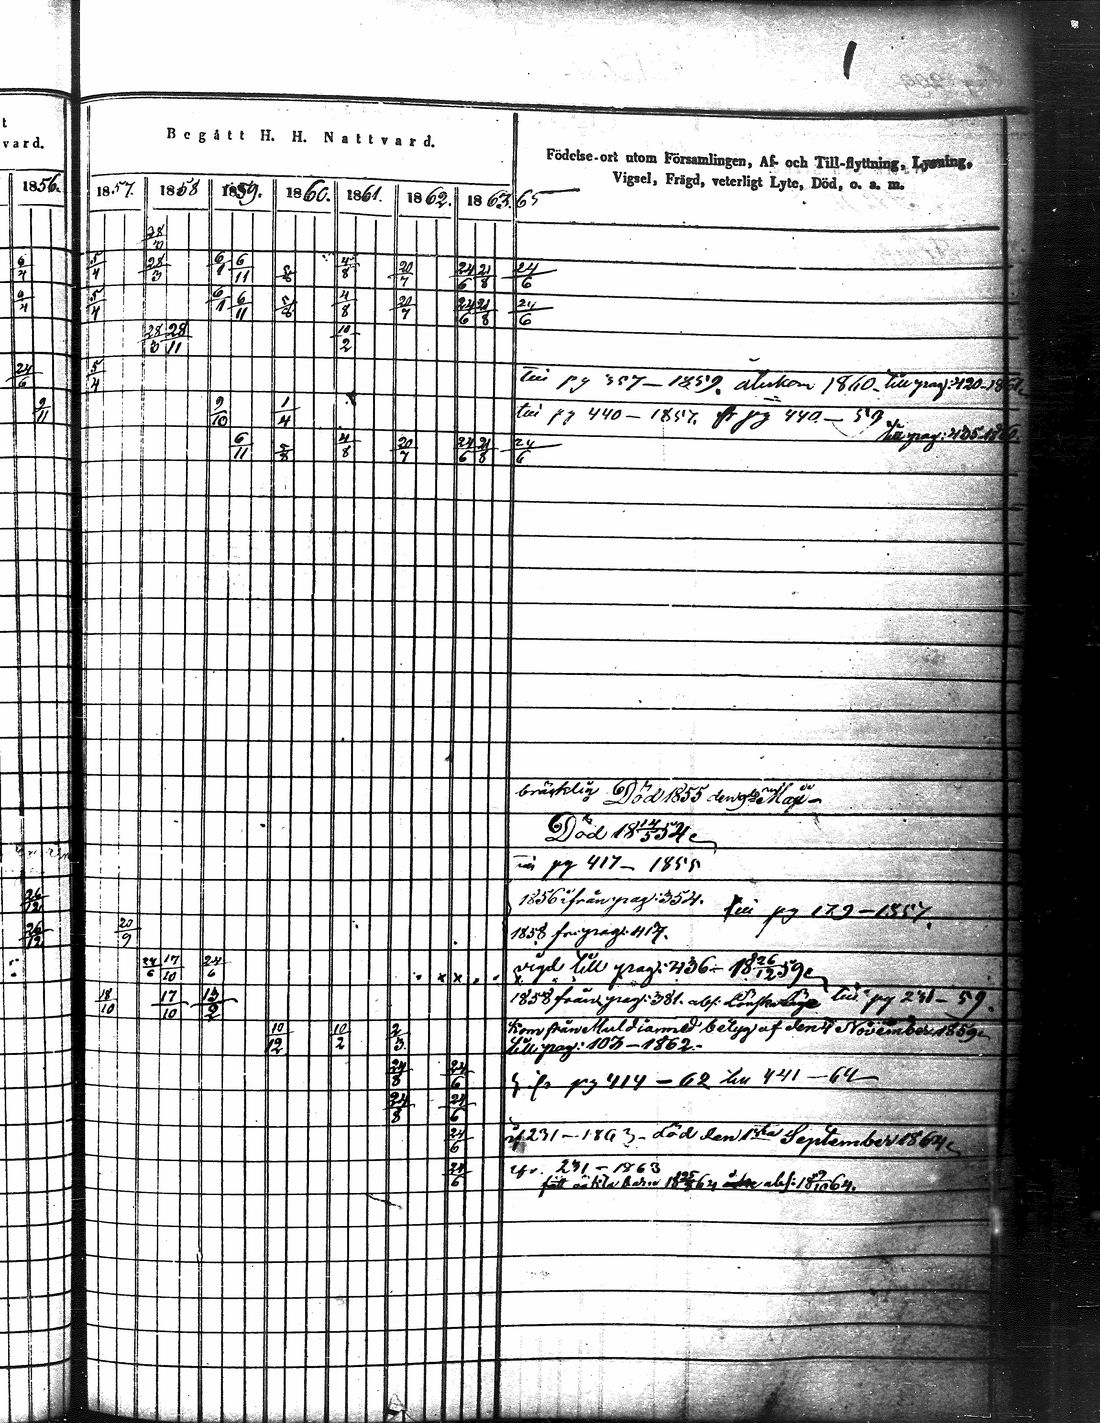 t
vard.
Begått H. H. Nattvard.
Födelse-ort utom Församlingen, Af- och Till-flyttning, Lysning,
Vigsel, Frägd, veterligt Lyte, Död, o. a. m.
1856. 1857. 1858 1859. 1860. 1861. 1862. 1863. 65
28/3
6/4 5/4 28/3 6/1 6/11 5/8 4/8 20/7 24/6 21/8 24/6
6/4 5/4 6/1 6/11 5/8 4/8 20/7 24/6 21/8 24/6
28/3 28/11 10/2
24/6 5/4 till pg 357 – 1859. återkom 1860. till pag: 420-1861.
9/11 9/10 1/4 till pg 440 – 1857. fr pg 440 – 59
till pag: 435
6/11 5/8 4/8 20/7 24/6 21/8 24/6
bräcklig Död 1855 den Maji
Död 18 14/5 54
pg 417 – 1855
26/12 1856 ifrån pag: 354. till pg 179 – 1857.
26/12 20/9 1858 fr. pag: 417.
24/6 17/10 24/6 vigd till pag: 436 – 18 26/12 59
18/10 17/10 13/2 1858 från pag: 381. abs: till pg 231 – 59.
10/12 10/2 2/3 Kom från med betyg af den November 1859
till pag: 103 – 1862.
24/8 24/6 fr pg 414 – 62 till 441 – 64
24/8 24/6
24/6 231 – 1863 – död den 1sta September 1864
24/6 231 – 1863
fått oäkta barn 18 64 abs: 18 64.